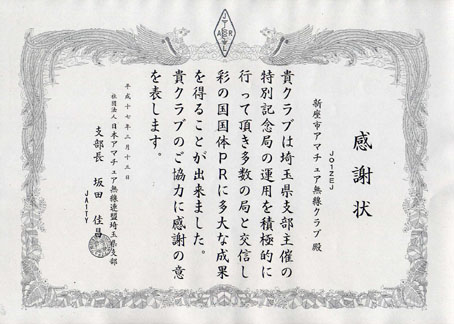 感謝状
JO1ZEJ
新座市アマチュア無線クラブ 殿
貴クラブは埼玉県支部主催の
特別記念局の運用を積極的に
行って頂き多数の局と交信し
彩の国国体PRに多大な成果
を得ることが出来ました。
貴クラブのご協力に感謝の意
を表します。
平成十七年二月十三日
社団法人 日本アマチュア無線連盟埼玉県支部
支部長 坂田 佳昌
JA1TY